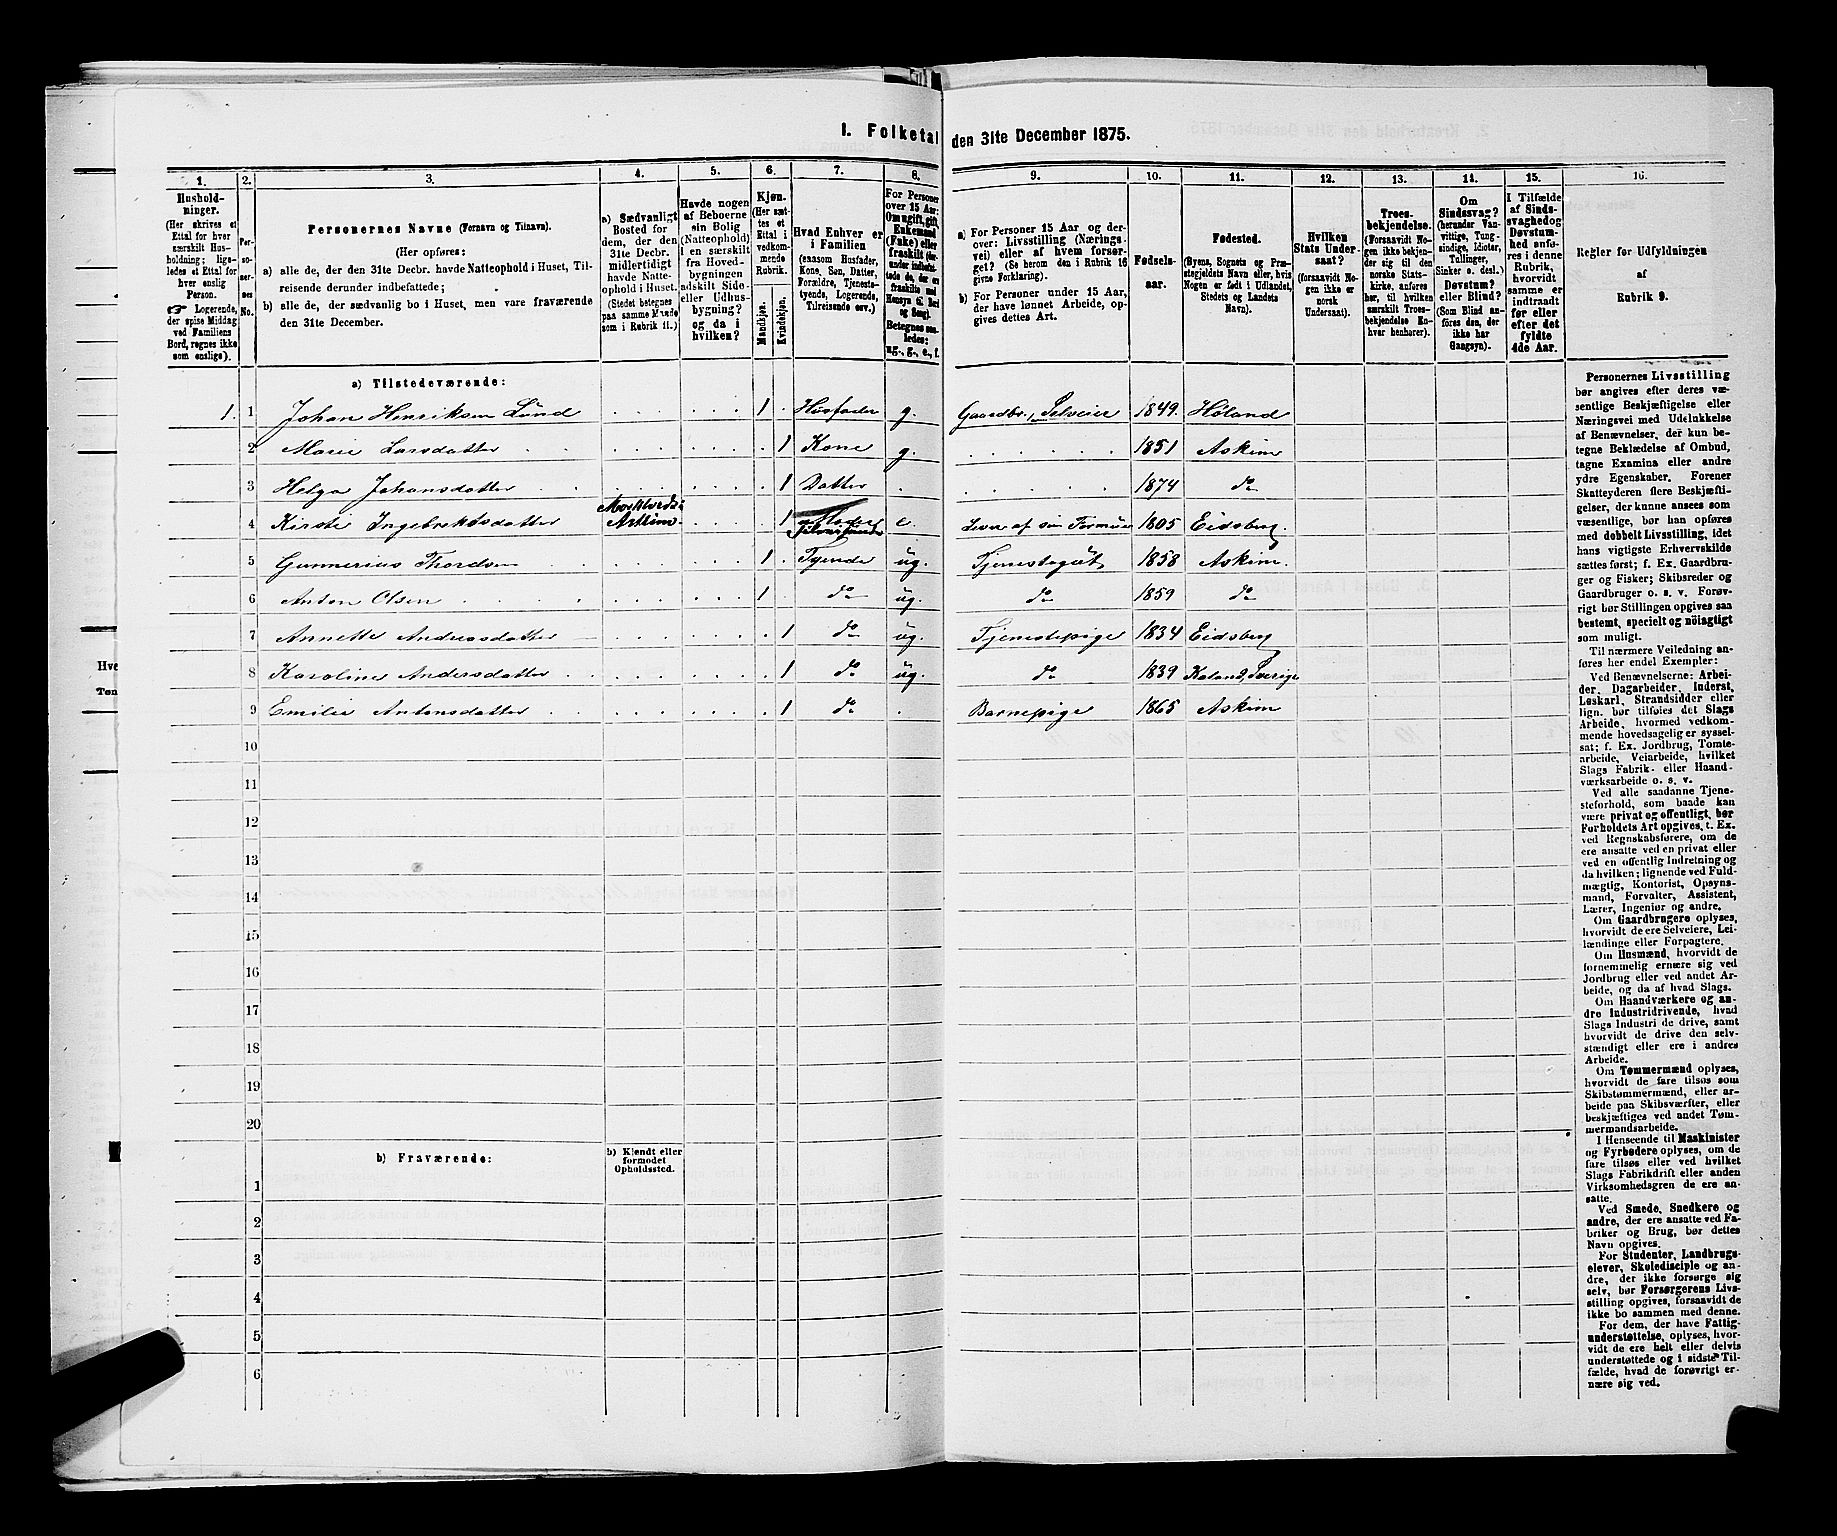 I. Folketal den 31te December 1875.
1.
Hushold-
ninger.
(Her skrives et
Ettal for hver
særskilt Hus-
holdning; lige-
ledes et Ettal for
hver enslig
Person.
☞ Logerende,
der spise Middag
ved Familiens
Bord, regnes ikke
som enslige).
2.
Per-
so-
ner-
nes
No.
3.
Personernes Navne (Fornavn og Tilnavn).
(Her opføres:
a) alle de, der den 31te Decbr. havde Natteophold i Huset, Til-
reisende derunder indbefattede;
b) alle de, der sædvanlig bo i Huset, men vare fraværende
den 31te December.
4.
a) Sædvanligt
Bosted for
dem, der den
31te Decbr.
midlertidigt
havde Natte-
ophold i Huset.
(Stedet betegnes
paa samme Maade
som i Rubrik 11.)
5.
Havde nogen
af Beboerne
sin Bolig
(Natteophold)
i en særskilt
fra Hoved-
bygningen
adskilt Side-
eller Udhus-
bygning?
og da i
hvilken?
6.
Kjøn.
(Her sæt-
tes et
Ettal i
vedkom-
mende
Rubrik.
Mandkjøn.
Kvindekjøn.
7.
Hvad Enhver er
i Familien
(saasom Husfader,
Kone, Søn, Datter,
Forældre, Tjeneste-
tyende, Logerende,
Tilreisende osv.)
8.
For Personer
over 15 Aar:
Om ugift, gift,
Enkemand
(Enke) eller
fraskilt
Betegnes saa-
ledes:
ug., g., e., f.
9.
a) For Personer 15 Aar og der-
over: Livsstilling (Nærings-
vei) eller af hvem forsør-
get? (Se herom den i Rubrik 16
givne Forklaring).
b) For Personer under 15 Aar,
der have lønnet Arbeide, op-
gives dettes Art.
10.
Fødsels-
aar.
11.
Fødested.
(Byens, Sognets og Præ-
stegjeldets Navn eller, hvis
Nogen er født i Udlandet,
Stedets og Landets
Navn).
12.
Hvilken
Stats Under-
saat?
(forsaavidt No-
gen ikke er
norsk
Undersaat).
13.
Troes-
bekjendelse.
(Forsaavidt No-
gen ikke bekjen-
der sig til den
norske Stats-
kirke, anføres
her, til hvilken
særskilt Troes-
bekjendelse En-
hver henhører).
14.
Om
Sindssvag?
(herunder Van-
vittige, Tung-
sindige, Idioter,
Tullinger,
Sinker o. desl.)
Døvstum?
eller Blind?
(Som Blind an-
føres den, der
ikke har
Gangsyn).
15.
I Tilfælde
af Sinds-
svaghed og
Døvstum-
hed anfø-
res i denne
Rubrik,
hvorvidt
samme er
indtraadt
før eller
efter det
fyldte
4de Aar.
16.
Regler for Udfyldningen
af
Rubrik 9.
a) Tilstedeværende:
1. 1 Johan Henriksen Lund 1 Husfader g. Gaardbr., Selveier 1849. Høland
2 Marie Larsdatter 1 Kone g. 1851 Askim
3 Helga Johansdatter 1 Datter 1874 do
4 Kirstie Ingebrektsdatter Askim 1 e. Lever af sin Formue 1805 Eidsberg.
5 Gunnerius Thordsen 1 Tyende ug. Tjenestegut 1858 Askim.
6 Anton Olsen 1 do ug. do 1859 do
7 Annette Andreasdatter 1 do ug. Tjenestepige 1834 Eidsberg
8 Karoline Andersdatter 1 do ug. do 1839 Sverige
9 Emilie Antonsdatter 1 do Barnepige 1865 Askim
10
11
12
13
14
15
16
17
18
19
20
b) Fraværende:
b) Kjendt eller
formodet
Opholdssted.
1
2
3
4
5
6
Personernes Livsstilling
bør angives efter deres væ-
sentlige Beskjæftigelse eller
Næringsvei med Udelukkelse
af Benævnelser, der kun be-
tegne Beklædelse af Ombud,
tagne Examina eller andre
ydre Egenskaber. Forener
Skatteyderen flere Beskjæfti-
gelser, der kunne ansees som
væsentlige, bør han opføres
med dobbelt Livsstilling, idet
hans vigtigste Erhvervskilde
sættes først; f. Ex. Gaardbru-
ger og Fisker; Skibsreder og
Gaardbruger o. s. v. Forøv-
rigt bør Stillingen opgives saa
bestemt, specielt og nøiagtigt
som muligt.
Til nærmere Veiledning an-
føres her endel Exempler:
Ved Benævnelserne: Arbei-
der, Dagarbeider, Inderst,
Løskarl, Strandsidder eller
lign. bør tilføies det Slags
Arbeide, hvormed vedkom-
mende hovedsagelig er syssel-
sat; f. Ex. Jordbrug, Tomte-
arbeide, Veiarbeide, hvilket
Slags Fabrik- eller Haand-
værksarbeide o. s. v.
Ved alle saadanne Tjene-
steforhold, som baade kan
være privat og offentligt, bør
Forholdets Art opgives, f. Ex.
ved Regnskabsførere, om de
ere ansatte ved en privat eller
ved en offentlig Indretning og
da hvilken; lignende ved Fuld-
mægtig, Kontorist, Opsyns-
mand, Forvalter, Assistent,
Lærer, Ingeniør og andre.
Om Gaardbrugere oplyses,
hvorvidt de ere Selveiere, Lei-
lændinge eller Forpagtere.
Om Husmænd, hvorvidt de
fornemmelig ernære sig ved
Jordbrug eller ved andet Ar-
beide, og da af hvad Slags.
Om Haandværkere og an-
dre Industridrivende, hvad
Slags Industri de drive, samt
hvorvidt de drive den selv-
stændigt eller ere i andres
Arbeide.
Om Tømmermænd oplyses,
hvorvidt de fare tilsøs som
Skibstømmermænd, eller ar-
beide paa Skibsværfter, eller
beskjæftiges ved andet Tøm-
mermandsarbeide.
I Henseende til Maskinister
og Fyrbødere oplyses, om de
fare tilsøs eller ved hvilket
Slags Fabrikdrift eller anden
Virksomhedsgren de ere an-
satte.
Ved Smede, Snedkere og
andre, der ere ansatte ved Fa-
briker og Brug, bør dettes
Navn opgives.
For Studenter, Landbrugs-
elever, Skoledisciple og an-
dre, der ikke forsørge sig
selv, bør Forsørgerens Livs-
stilling opgives, forsaavidt de
ikke bo sammen med denne.
For dem, der have Fattig-
understøttelse, oplyses, hvor-
vidt de ere helt eller delvis
understøttede og i sidste Til-
fælde, hvad de forøvrigt er-
nære sig ved.